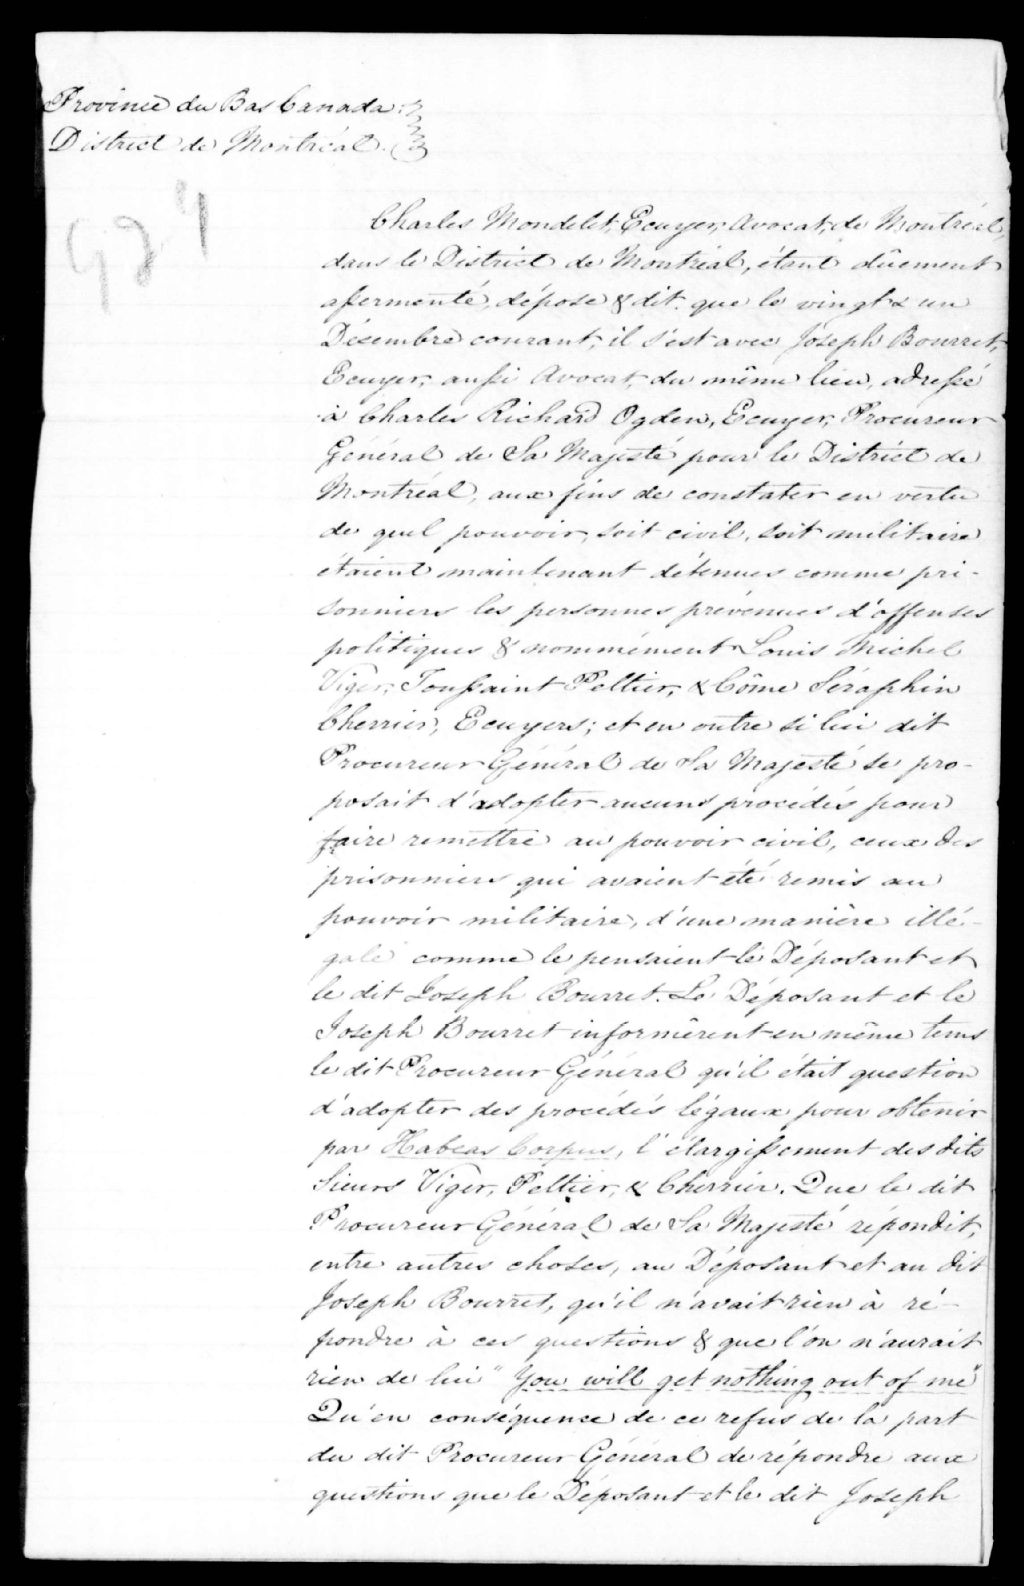 Province du Bas Canada
District de Montréal.
Charles Mondelet, Ecuyer, Avocat, de Montréal,
dans le District de Montréal, étant dûement
assermenté, dépose & dit: que le vingt & un
Décembre courant, il s'est avec Joseph Bourret,
Ecuyer, aussi Avocat, du même lieu, adressé
à Charles Richard Ogden, Ecuyer, Procureur
Général de Sa Majesté pour le District de
Montréal, aux fins de constater en vertu
de quel pouvoir, soit civil, soit militaire
étaient maintenant détenues comme pri-
sonniers les personnes prévenues d'offenses
politiques & nommément Louis Michel
Viger, Toussaint Peltier, & Côme Séraphin
Cherrier, Ecuyers; et en outre si lui dit
Procureur Général de Sa Majesté se pro-
posait d'adopter aucuns procédés pour
faire remettre au pouvoir civil, ceux des
prisonniers qui avaient été remis au
pouvoir militaire, d'une manière illé-
gale comme le pensaient le Déposant et
le dit Joseph Bourret. Le Déposant et le
Joseph Bourret informèrent en même tems
le dit Procureur Général qu'il était question
d'adopter des procédés légaux pour obtenir
par Habeas Corpus, l'élargissement des dits
Sieurs Viger, Peltier, & Cherrier. Que le dit
Procureur Général de Sa Majesté répondit,
entre autres choses, au Déposant et au dit
Joseph Bourret, qu'il n'avait rien à ré-
pondre à ces questions & que l'on n'aurait
rien de lui "You will get nothing out of me"
Qu'en conséquence de ce refus de la part
du dit Procureur Général de répondre aux
questions que le Déposant et le dit Joseph